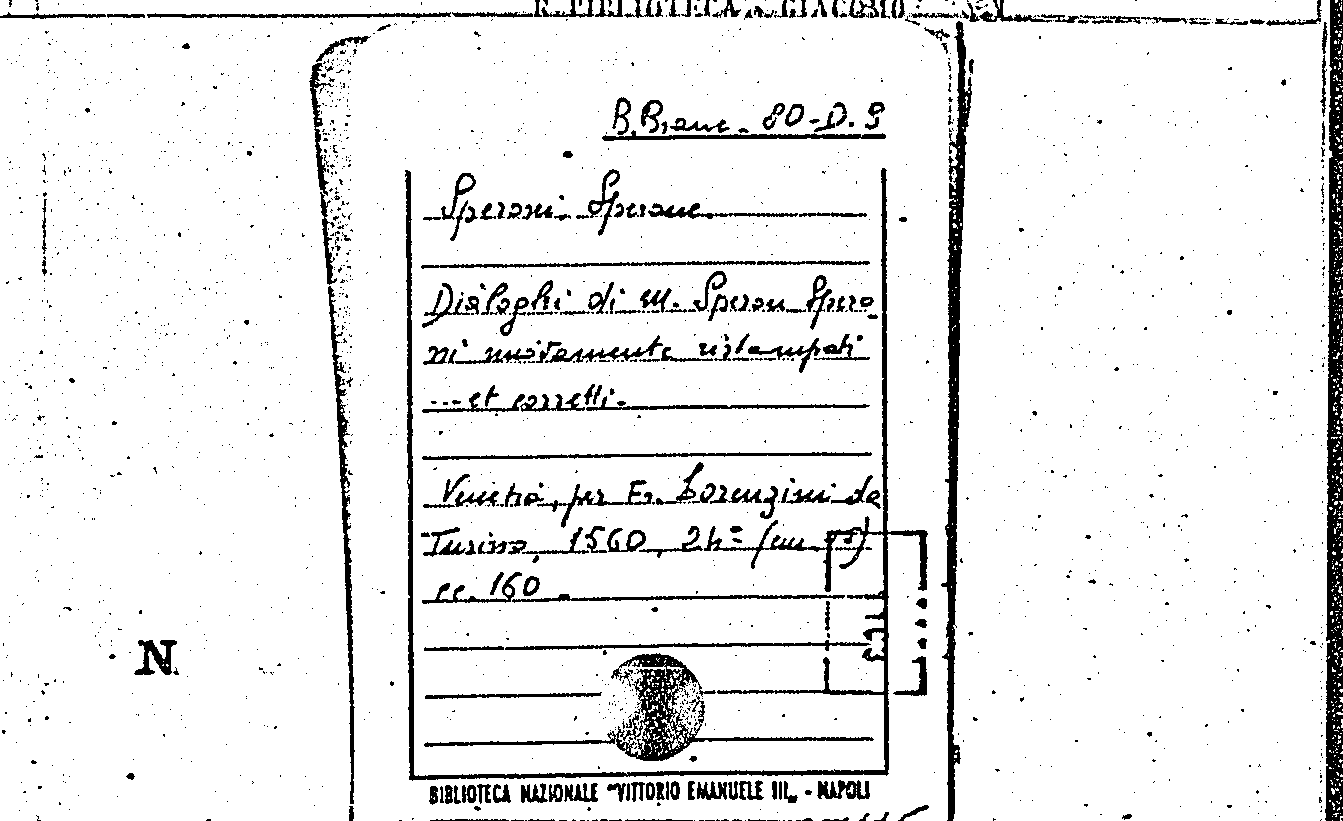 R. BIBLIOTECA GIACOMO
B. Branc. 80-D. 9
Speroni Sperone.
Dialoghi di M. Speron Spero-
ni nuovamente ristampati
--- et corretti.
Venetia, per Fr. Lorenzini da
Turino, 1560, 24º (cm. 15)
cc. 160 -
N
BIBLIOTECA NAZIONALE "VITTORIO EMANUELE III" - NAPOLI